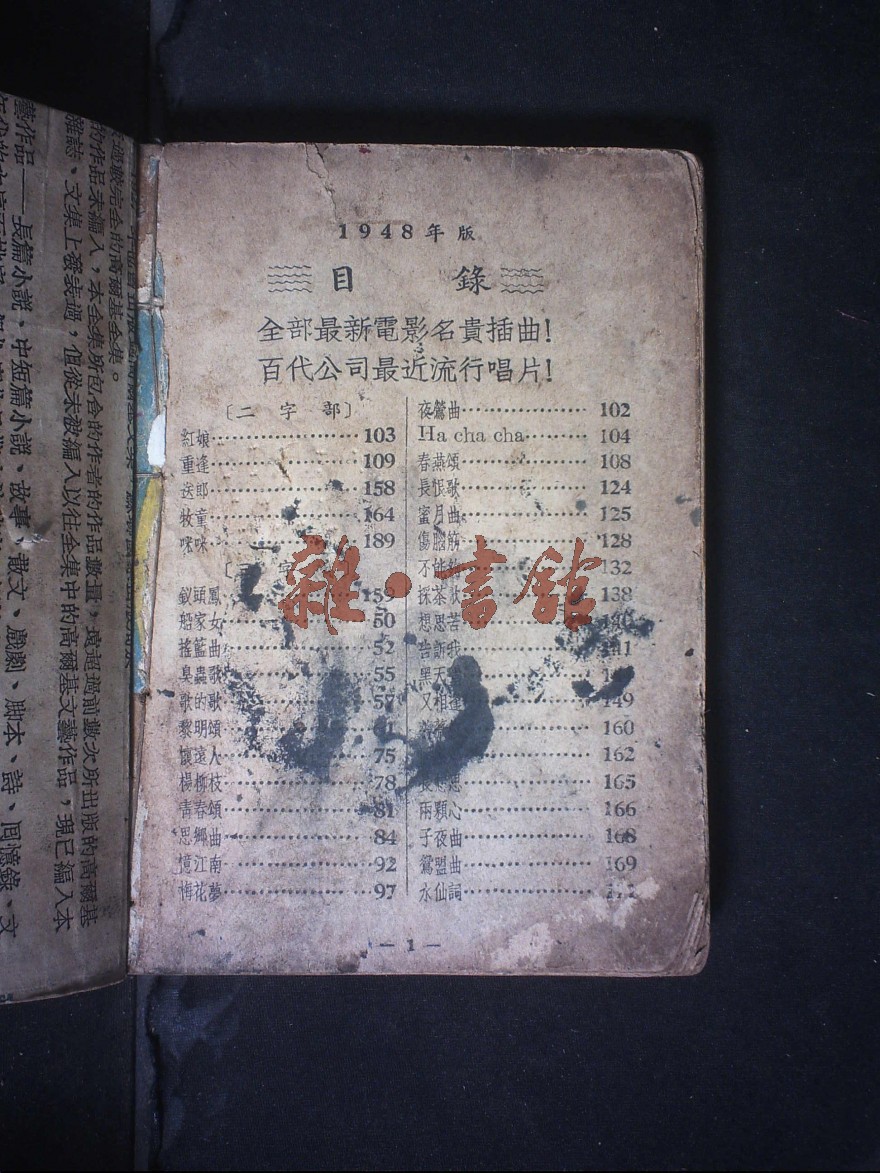 1948年版
目 錄
全部最新電影名貴插曲！
百代公司最近流行唱片！
〔二字部〕
紅娘 103
重逢 109
送郎 158
牧童 164
咪咪 189
字
釵頭鳳 159
船家女 50
搖籃曲 52
臭蟲歌 55
歌的歌 57
黎明頌
懷遠人 75
楊柳枝 78
青春頌 81
思鄉曲 84
憶江南 92
悔花夢 97
夜鶯曲 102
Ha cha cha 104
春燕頌 108
長恨歌 124
蜜月曲 125
傷腦筋 128
不 132
採茶 138
想思苦
告訴我
黑天
又相逢 149
160
162
思 165
兩顆心 166
子夜曲 168
鴛盟曲 169
水仙詞
— 1 —
雜·書館
過最完全的高爾基全集。
的作品未編入，本全集所包含的作者的作品數量，遠超過前數次所出版的高爾基
雜誌、文集上發表過，但從未被編入以往全集中的高爾基文藝作品，現已編入本
藝作品——長篇小說、中短篇小說、故事、散文、戲劇、脚本、詩、回憶錄、文